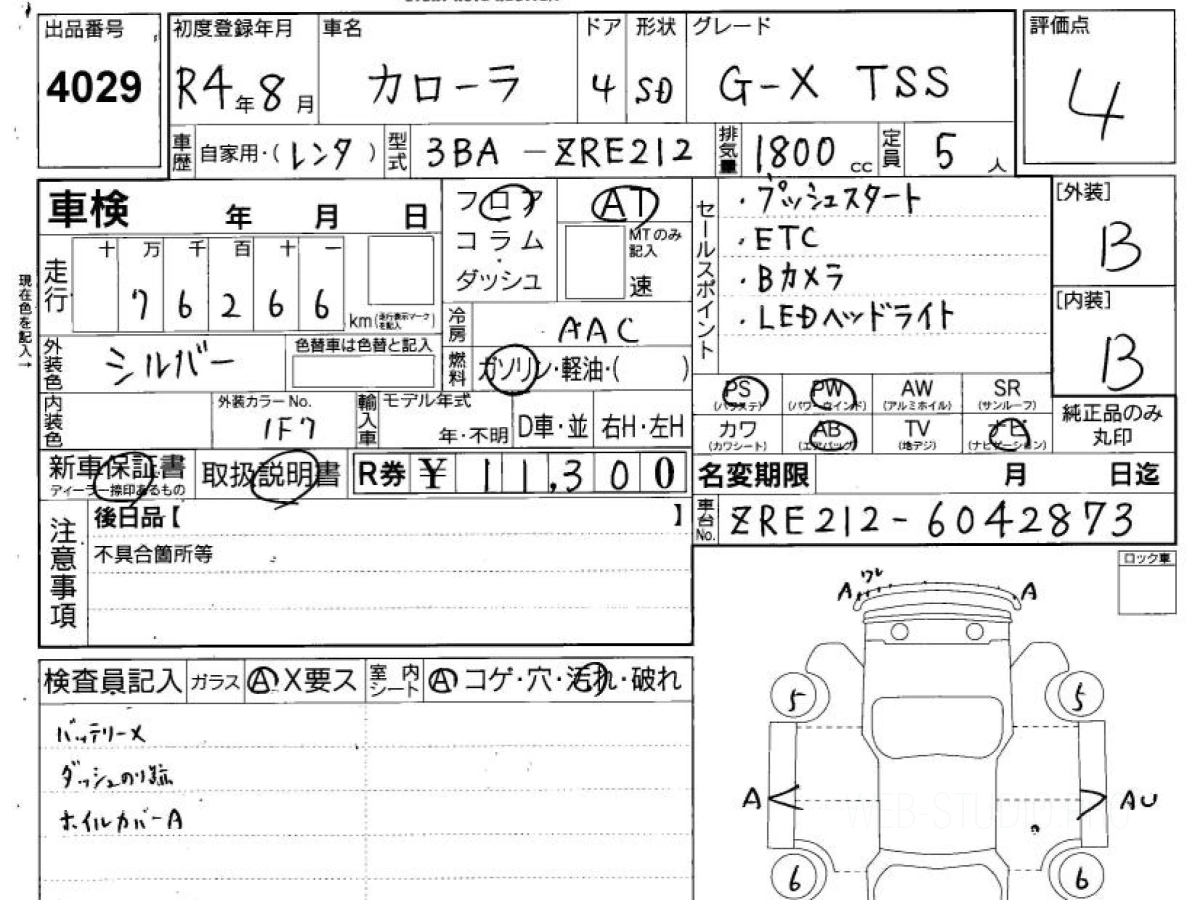 出品番号 初度登録年月 車名 ドア 形状 グレード 評価点
4029 R4年8月 カローラ 4 SD G-X TSS 4
車歴 自家用・(レンタ) 型式 3BA-ZRE212 排気量 1800cc 定員 5人
車検 年 月 日 フロア AT セールスポイント ・プッシュスタート [外装]
コラム MTのみ記入 ・ETC B
走行 十 万 千 百 十 一 ダッシュ 速 ・Bカメラ
76266 km(走行表示マークを記入) 冷房 AAC ・LEDヘッドライト [内装]
現在色を記入→
外装色 シルバー 色替車は色替と記入 燃料 ガソリン・軽油・( ) B
内装色 外装カラーNo. 1F7 輸入車 モデル年式 年・不明 D車・並 右H・左H
PS(パワステ) PW(パワーウインド) AW(アルミホイル) SR(サンルーフ) 純正品のみ丸印
カワ(カワシート) AB(エアバッグ) TV(地デジ) ナビ(ナビゲーション)
新車保証書 ディーラー捺印あるもの 取扱説明書 R券 ¥11,300 名変期限 月 日迄
注意事項 後日品【 】 車台No. ZRE212-6042873
不具合箇所等 ロック車
A ワレ A
検査員記入 ガラス A X要ス 室内シート A コゲ・穴・汚れ・破れ
5 5
バッテリーX
ダッシュのり跡
ホイルカバーA
A AU
WEB-STUDIO.PRO
6 6